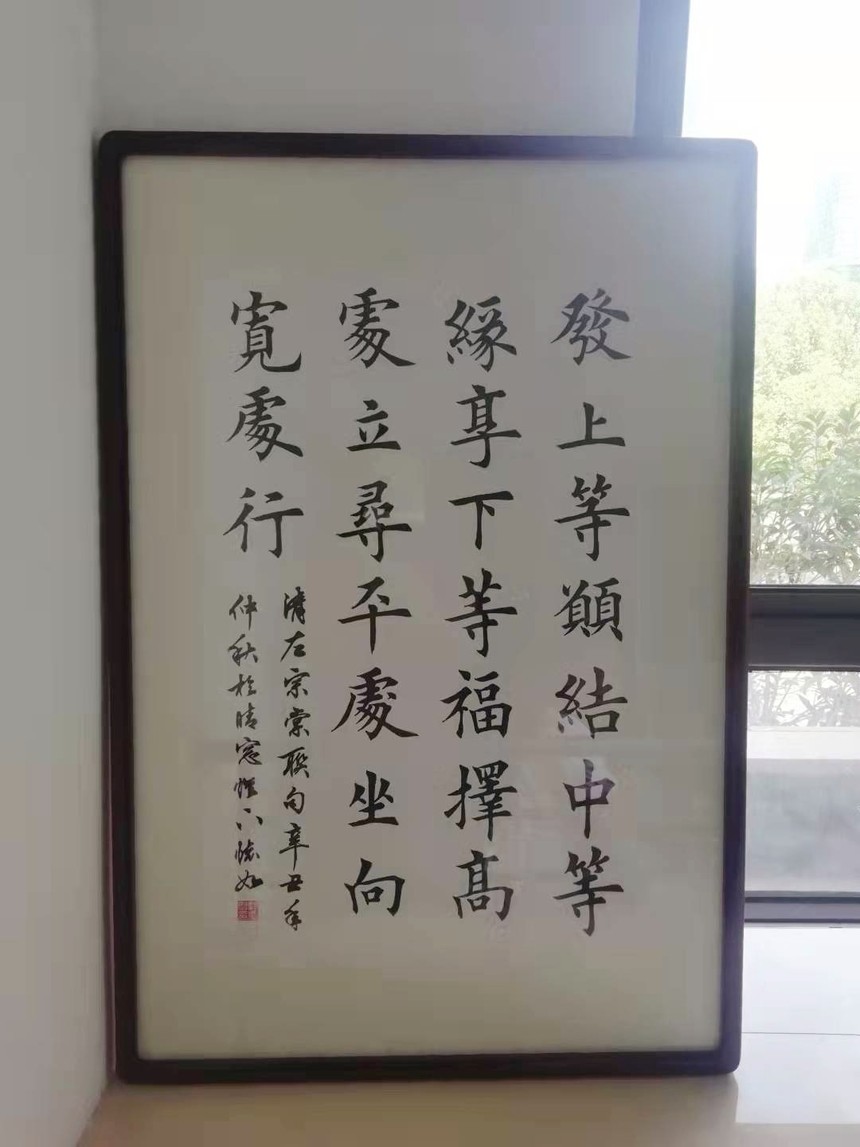 發上等願結中等
緣享下等福擇高
處立尋平處坐向
寬處行
清左宗棠聯句辛丑年
仲秋於晴窗